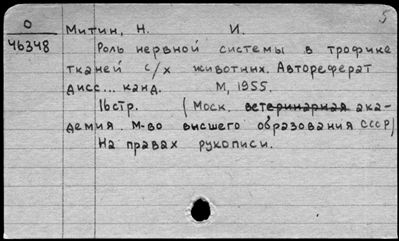 5
О Митин, Н. И.
46348 Роль нервной системы в трофике
тканей с/х животних. Автореферат
дисс... канд. М, 1955.
16стр. (Моск. ветеринарная ака-
демия. М-во высшего образования СССР)
На правах рукописи.